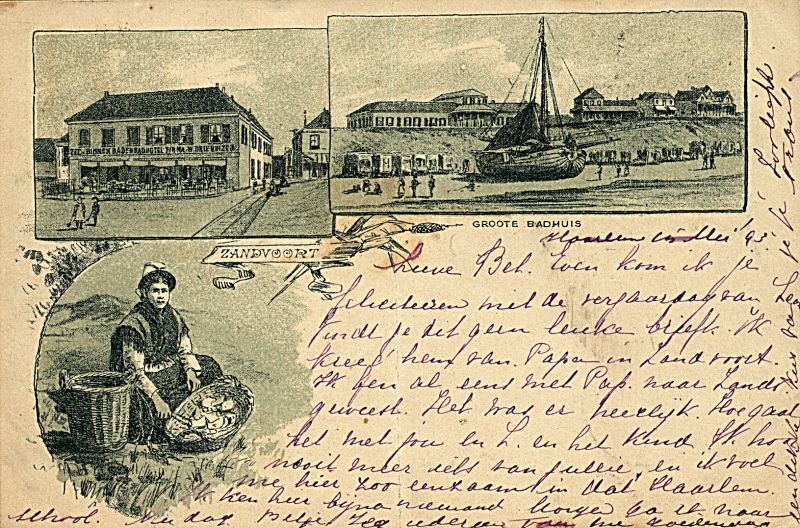 ZEE- & BINNEN BADEN BADHOTEL FIRMA W. DRIEHUIZEN
GROOTE BADHUIS
ZANDVOORT
Haarlem Mei 93
Lieve Bet. Even kom ik je
feliciteeren met de verjaardag van
Vindt je dit geen leuke briefk. Ik
kreeg hem van Papa in Zandvoort.
Ik ben al eens met Pap. naar Zandv
geweest. Het was er heerlijk. Hoe gaat
het met jou en L. en het kind Ik hoor
nooit meer iets van jullie, en ik voel
me hier zoo eenzaam in dat Haarlem.
Ik ken hier bijna niemand Morgen ga ik naar
school. Nu dag Betje Zeg iedereen van me goeden
en dikke kus van je je